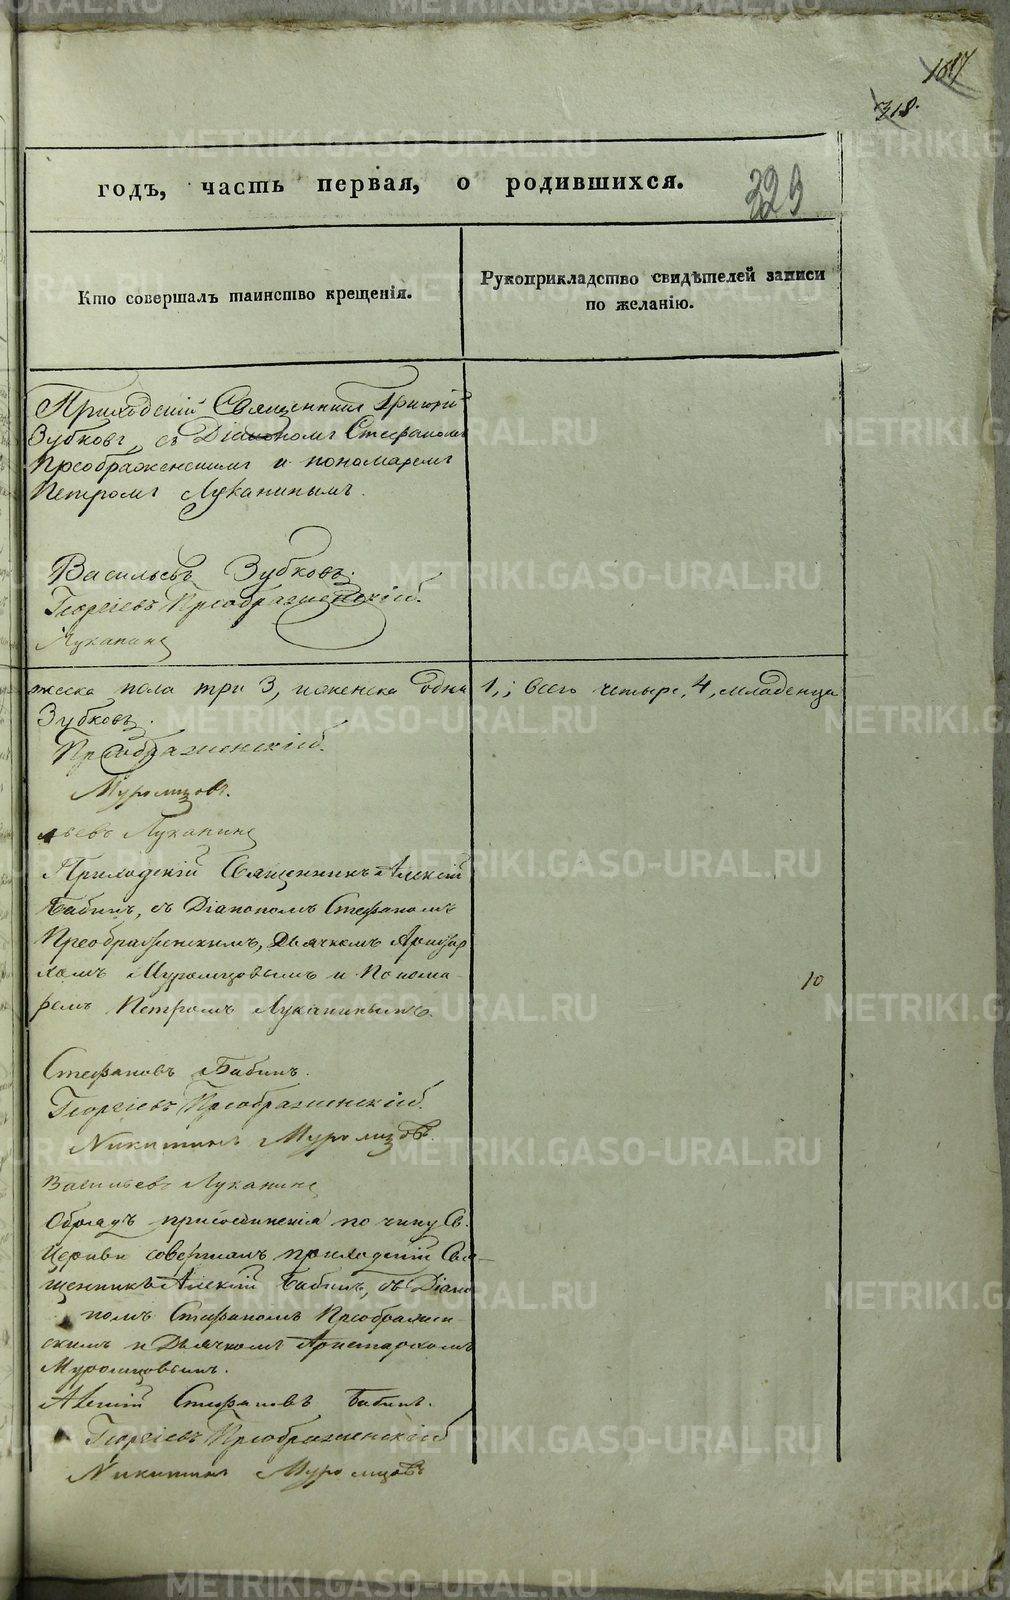 318.
годъ, часть первая, о родившихся.
329
Кто совершалъ таинство крещенія.
Рукоприкладство свидѣтелей записи
по желанію.
Приходскій Священникъ Григорій
Зубковъ, съ Діакономъ Стефаномъ
Преображенскимъ и пономаремъ
Петромъ Луканинымъ.
Васильевъ Зубковъ.
Георгіевъ Преображенскій.
Луканинъ
жеска пола три 3, и женска одна 1,; всего четыре, 4, младенца
Зубковъ.
Преображенскій.
Муромцовъ.
льевъ Луканинъ
Приходскій Священникъ Алексій
Бабинъ, съ Діакономъ Стефаномъ
Преображенскимъ, Дьячкомъ Аристар
хомъ Муромцовымъ и Понома-
ремъ Петромъ Луканинымъ.
10
Стефановъ Бабинъ.
Георгіевъ Преображенскій.
Никитинъ Муромцовъ.
Васильевъ Луканинъ
Обрядъ присоединенія по чину Св.
Церкви совершалъ приходскій Свя-
щенникъ Алексій Бабинъ, съ Діако
номъ Стефаномъ Преображен-
скимъ и Дьячкомъ Аристархомъ
Муромцовымъ.
Алексій Стефановъ Бабинъ.
Георгіевъ Преображенскій
Никитинъ Муромцовъ
METRIKI.GASO-URAL.RU